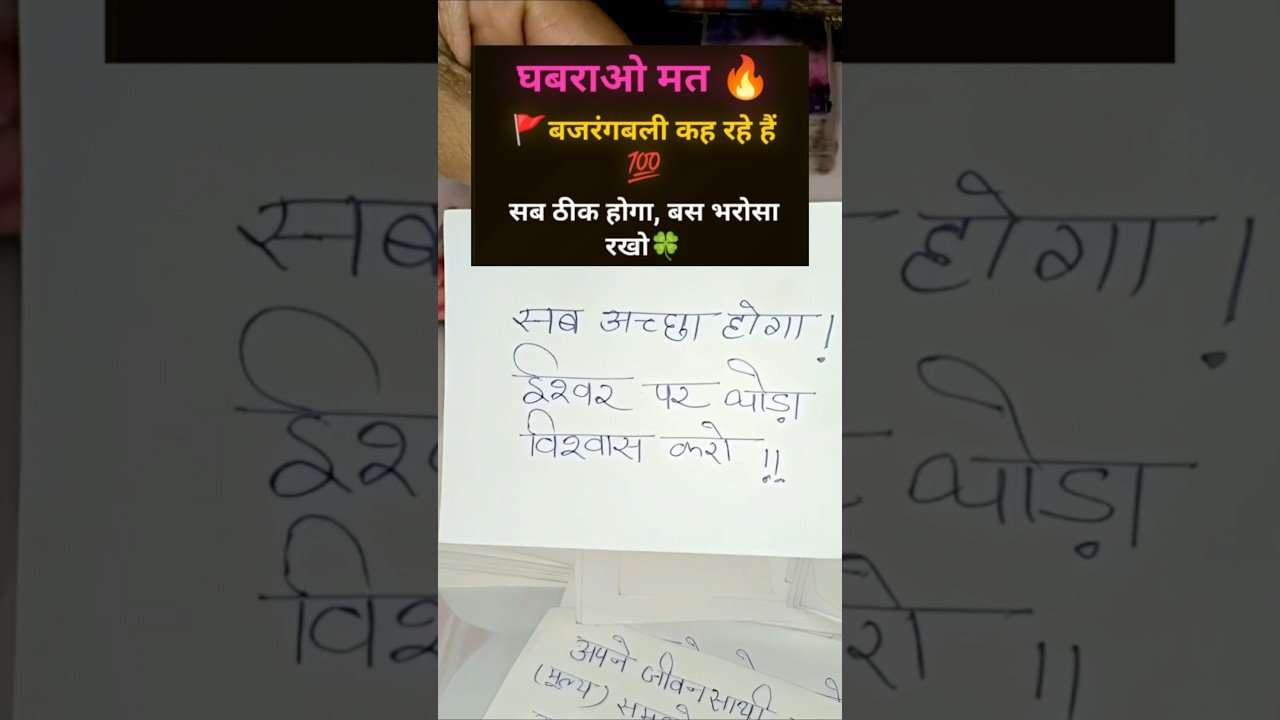 घबराओ मत 🔥
🚩बजरंगबली कह रहे हैं
💯
सब ठीक होगा, बस भरोसा
रखो🍀
सब अच्छा होगा!
ईश्वर पर थोड़ा
विश्वास करो !!
अपने जीवनसाथी
(मूल्य)